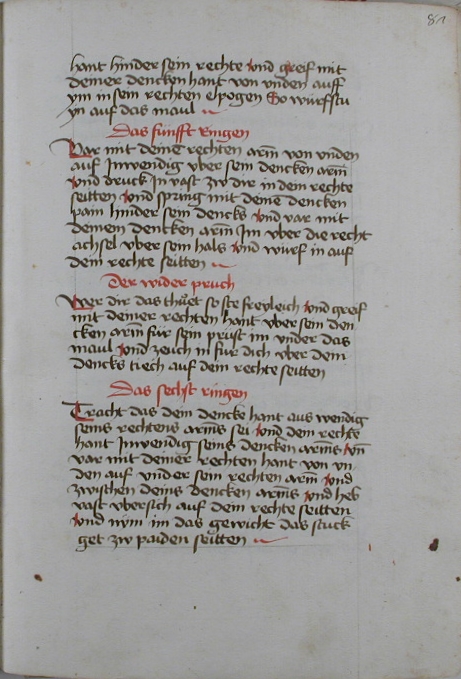 81
hant hinder sein rechte vnd greif mit
deiner dencken hant von vnden auff
ym in sein rechten elpogen So wurfstu
yn auf das maul
Das funfft ringen
Var mit deinē rechten arm̄ von vnden
auf Inwendig vber sein dencken arm
vnd druck In vast zw dir in dein rechte
seitten vnd spring mit deinē dencken
pain hinder sein dencks vnd var mit
deinem dencken arm̄ Im vber die recht
achsel vber sein hals vnd wurf in auf
dein rechte seitten
Der wider pruch
Wer dir das thuet so ste freyleich vnd greif
mit deiner rechten hant vber sein den
cken arm̄ für sein prust im vnder das
maul vnd zeuch in für dich vber dein
dencks tiech auf dein rechte seitten
Das sechst ringen
Tracht das dein dencke hant aus wendig
seins rechtens armß sei vnd dein rechte
hant Inwendig seins dencken armß vn̄
var mit deiner rechten hant von vn
den auf vnder sein rechten arm̄ vnd
zwischen deins dencken armß vnd heb
vast vbersich auf dein rechte seitten
vnd nym im das gewicht das stuck
get zw paiden seitten